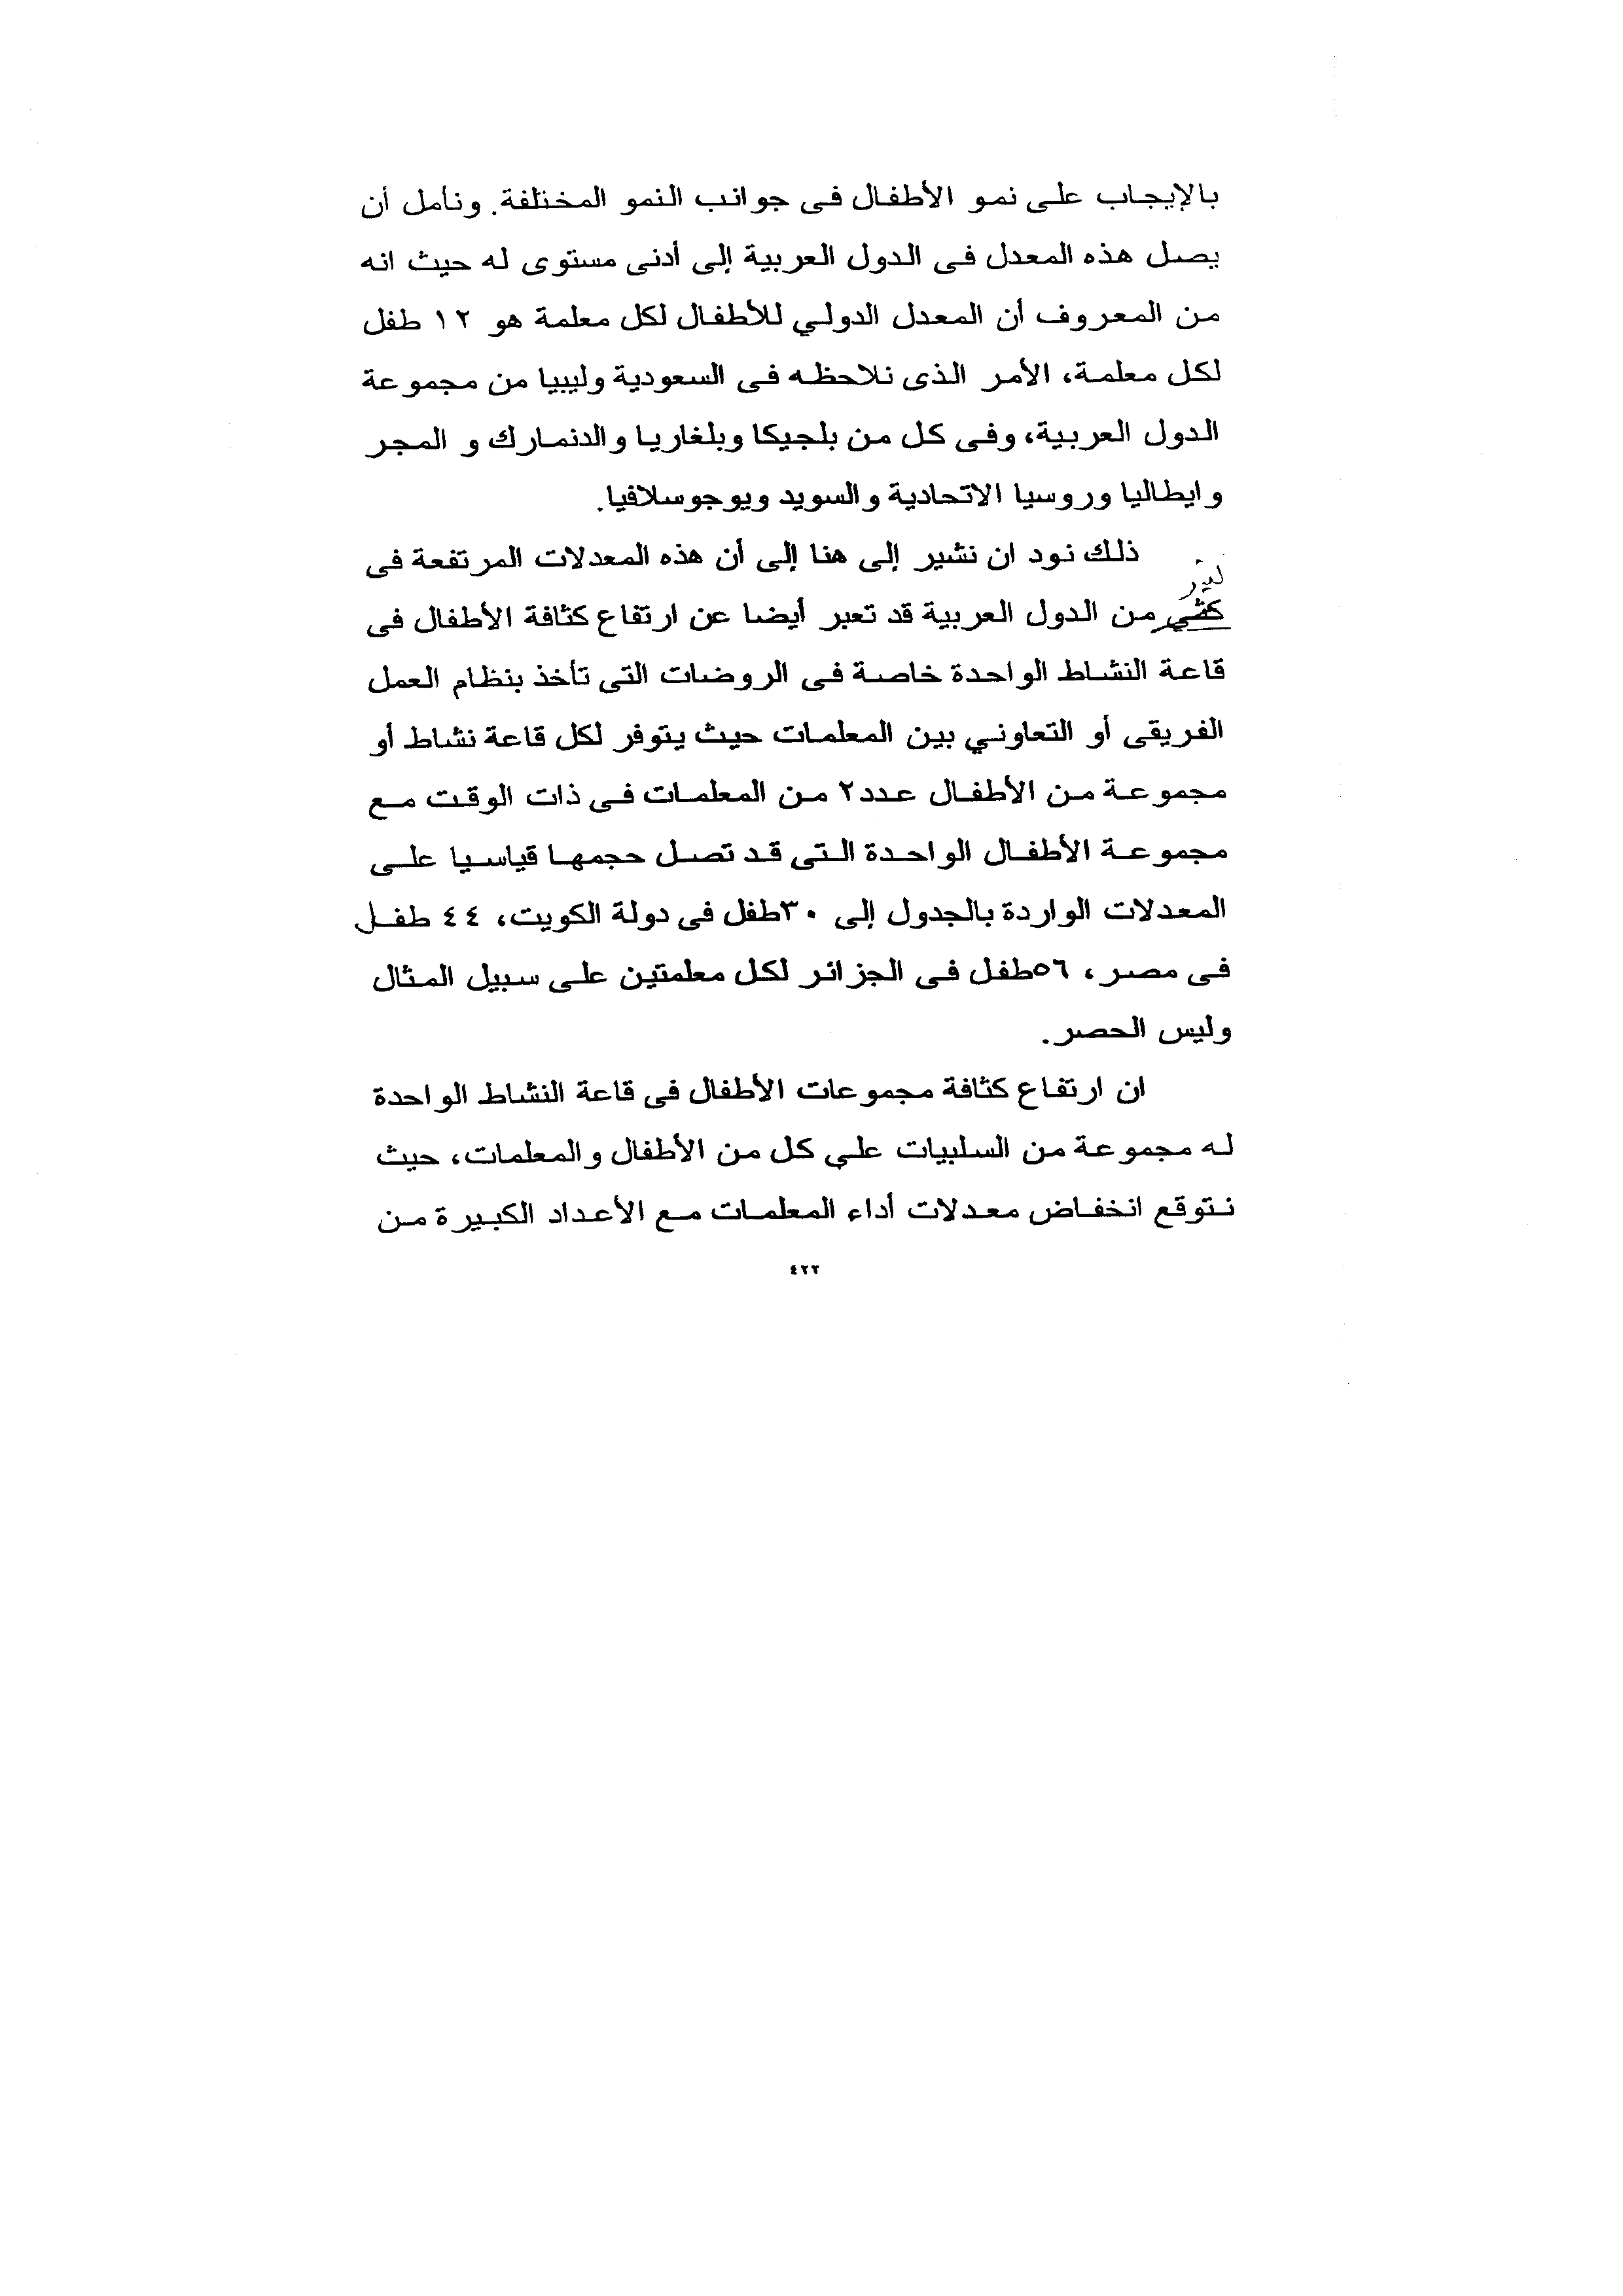 بالإيجاب على نمو الأطفال فى جوانب النمو المختلفة. ونأمل أن
يصل هذه المعدل فى الدول العربية إلى أدنى مستوى له حيث انه
من المعروف أن المعدل الدولي للأطفال لكل معلمة هو ١٢ طفل
لكل معلمة، الأمر الذى نلاحظه فى السعودية وليبيا من مجموعة
الدول العربية، وفى كل من بلجيكا وبلغاريا والدنمارك و المجر
وايطاليا وروسيا الاتحادية والسويد ويوجوسلافيا.
ذلك نود ان نشير إلى هنا إلى أن هذه المعدلات المرتفعة فى
من الدول العربية قد تعبر أيضا عن ارتفاع كثافة الأطفال فى
قاعة النشاط الواحدة خاصة فى الروضات التى تأخذ بنظام العمل
الفريقى أو التعاوني بين المعلمات حيث يتوفر لكل قاعة نشاط أو
مجموعة من الأطفال عدد٢ من المعلمات فى ذات الوقت مع
مجموعة الأطفال الواحدة التى قد تصل حجمها قياسيا على
المعدلات الواردة بالجدول إلى ٣٠طفل فى دولة الكويت، ٤٤ طفل
فى مصر، ٥٦طفل فى الجزائر لكل معلمتين على سبيل المثال
وليس الحصر.
ان ارتفاع كثافة مجموعات الأطفال فى قاعة النشاط الواحدة
له مجموعة من السلبيات علي كل من الأطفال والمعلمات، حيث
نتوقع انخفاض معدلات أداء المعلمات مع الأعداد الكبيرة من
٤٢٢